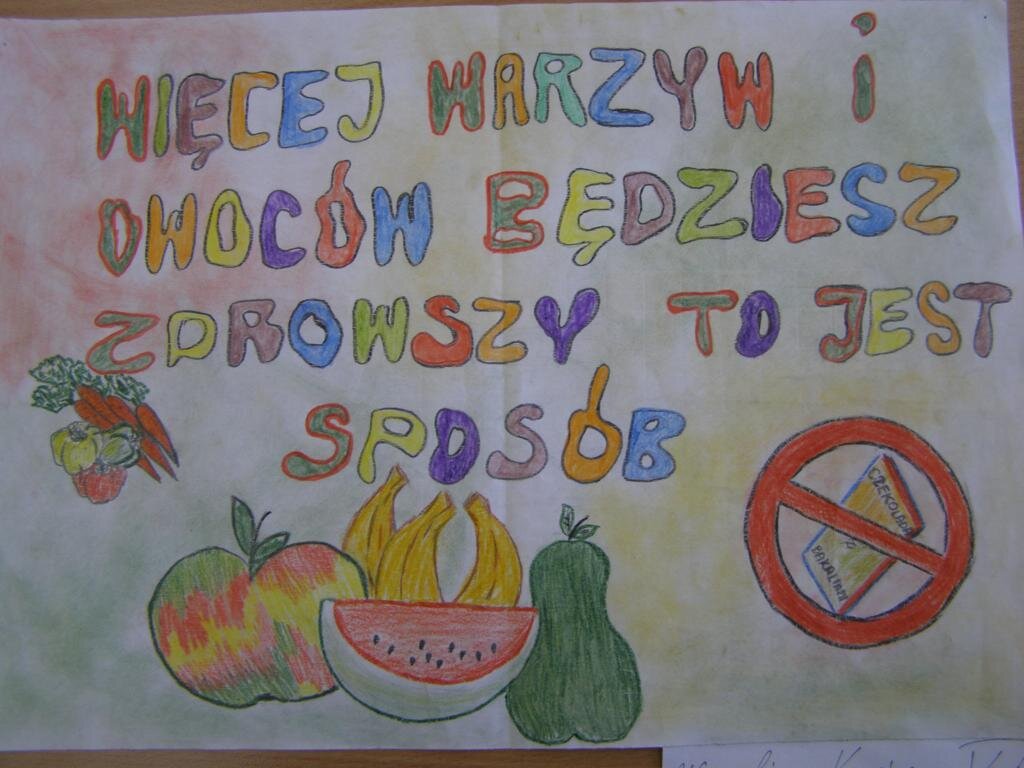 WIĘCEJ WARZYW i
OWOCÓW BĘDZIESZ
ZDROWSZY TO JEST
SPOSÓB
CZEKOLADA
Z
BAKALIAMI